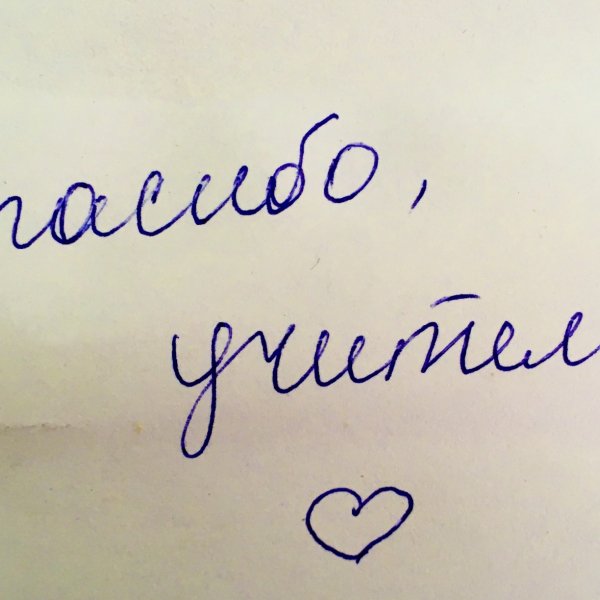 пасибо,
учител